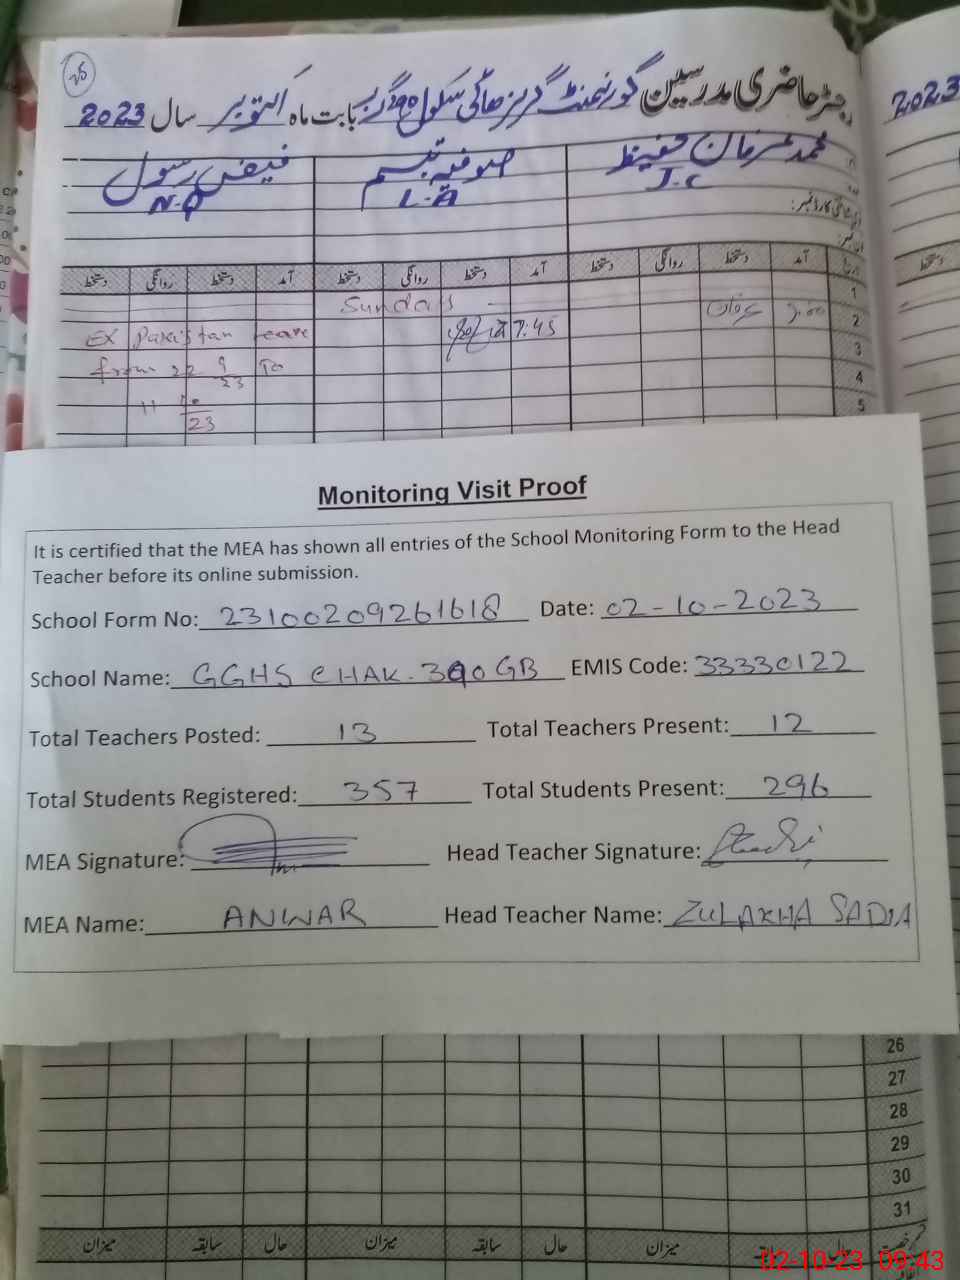 رجسٹر حاضری مدرسین گورنمنٹ گرلز ہائی سکول 390 گ ب بابت ماہ اکتوبر سال 2023
2023
محمد عرفان حفیظ صوفیہ تبسم فیض رسول
J.C L.A N.Q
آمد دستخط روانگی دستخط آمد دستخط روانگی دستخط آمد دستخط روانگی دستخط
1 Sunday
2 عرفان 7:45 Ex Pakistan leave
3 from 22 9/23 To
4
5 11 10/23
Monitoring Visit Proof
It is certified that the MEA has shown all entries of the School Monitoring Form to the Head
Teacher before its online submission.
School Form No: 23100209261618 Date: 02-10-2023
School Name: GGHS CHAK.390GB EMIS Code: 33330122
Total Teachers Posted: 13 Total Teachers Present: 12
Total Students Registered: 357 Total Students Present: 296
MEA Signature: Head Teacher Signature:
MEA Name: ANWAR Head Teacher Name: ZULAKHA SADIA
26
27
28
29
30
31
حال سابقہ میزان حال سابقہ میزان حال سابقہ میزان
02-10-23 09:43